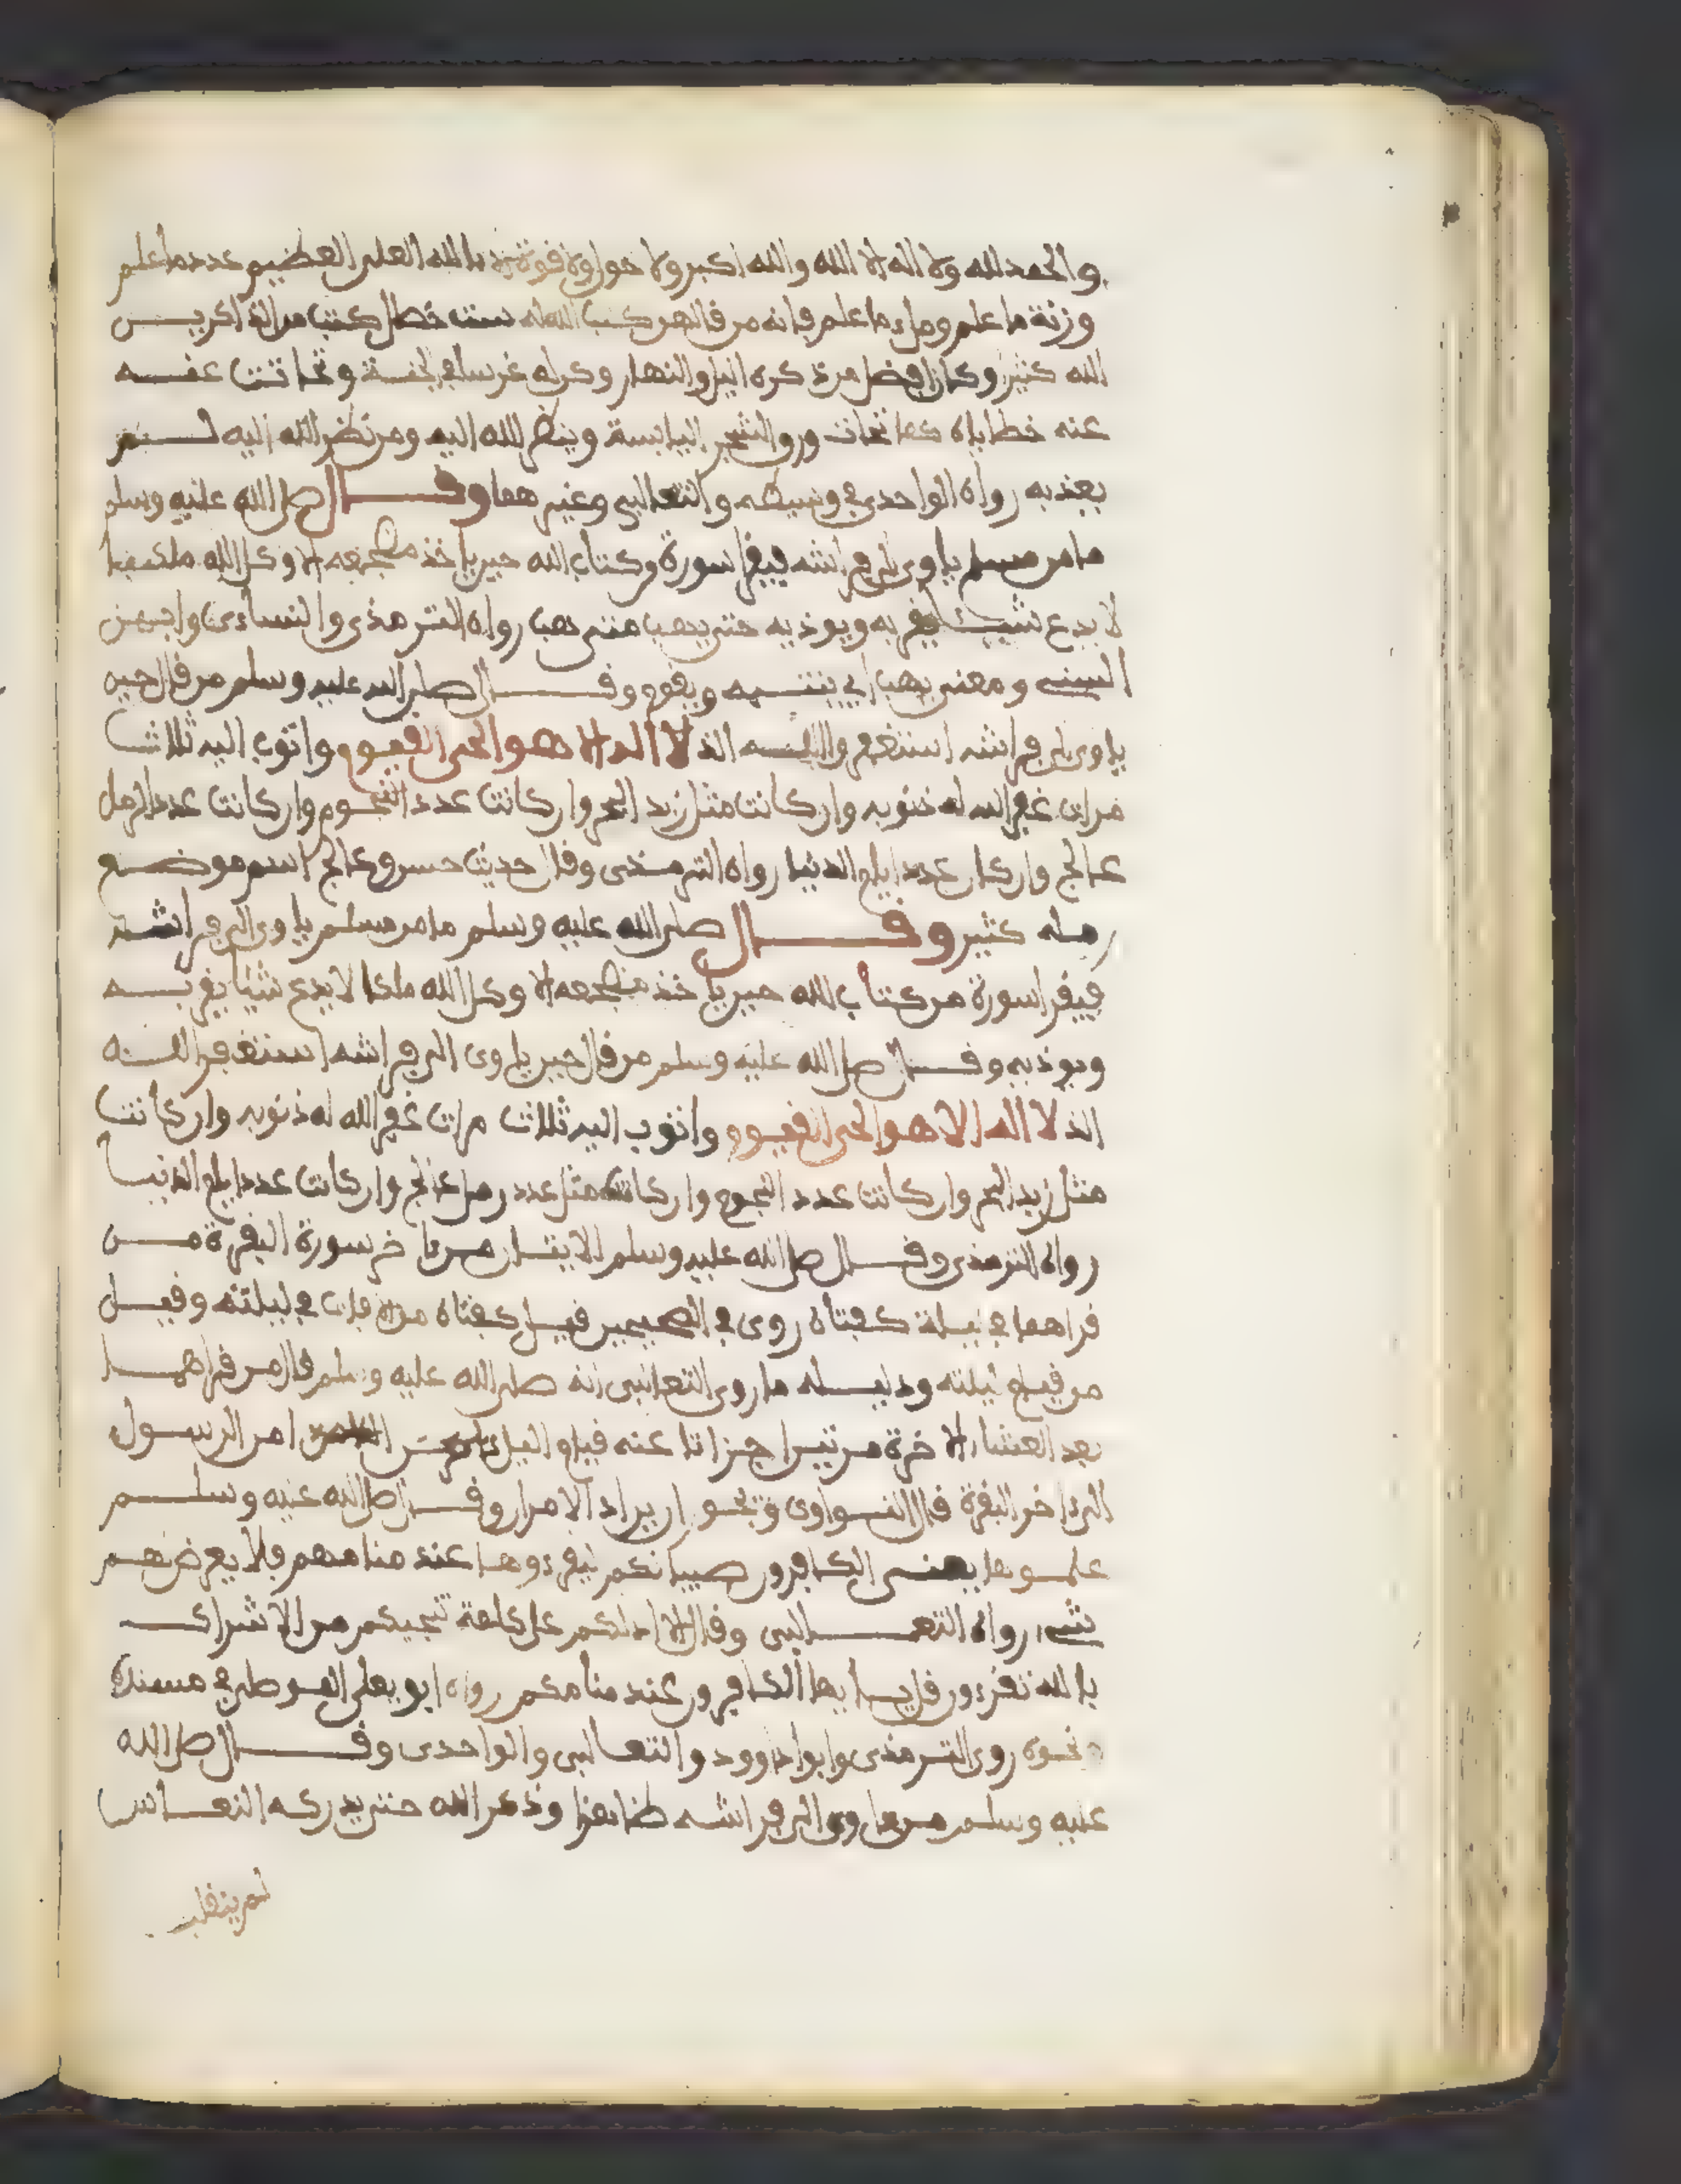 والحمد لله ولا اله الا الله والله اكبر ولا حول ولا قوة الا بالله العلي العظيم عدد ما علم
وزنة ما علم وملء ما علم فانه من قالهن كتب الله له ست خصال كتب من الذاكريــن
الله كثيرا وكان افضل من ذكره اليل والنهار وكن له غرسا في الجنة وتحاتت عنــه
عنه خطاياه كما تحات ورق الشجر اليابسة وينظر الله اليه ومن نظر الله اليه لــم
يعذبه رواه الواحدي في وسيطه والثعالبي وغيرهما وقــال صلى الله عليه وسلم
ما من مسلم ياوي الى فراشه فيقرا سورة من كتاب الله حين ياخذ مضجعه الا وكل الله ملكا
لا يدع شيئا يقربه ويوذيه حتى يهب متى هب رواه الترمذي والنساءي وابن
السني ومعنى يهب اي ينتبه ويقوم وقــال صلى الله عليه وسلم من قال حين
ياوي الى فراشه استغفر اللــه الذ لا اله الا هو الحي القيوم واتوب اليه ثلاث
مرات غفر الله له ذنوبه وان كانت مثل زبد البحر وان كانت عدد النجوم وان كانت عدد الرمل
عالج وان كان عدد ايام الدنيا رواه الترمذي وقال حديث حسن وعالج اسم موضــع
رمله كثير وقــال صلى الله عليه وسلم ما من مسلم ياوي الى فراشه
فيقرا سورة من كتاب الله حين ياخذ مضجعه الا وكل الله ملكا لا يدع شيئا يقربــه
ويوذيه وقــال صلى الله عليه وسلم من قال حين ياوى الى فراشه استغفر اللــه
الذ لا اله الا هو الحي القيوم واتوب اليه ثلاث مرات غفر الله له ذنوبه وان كانت
مثل زبد البحر وان كانت عدد النجوم وان كانت مثل عدد رمل عالج وان كانت عدد ايام الدنيــا
رواه الترمذي وقــال صلى الله عليه وسلم الايتــان من ءاخر سورة البقرة مــن
قراهما في ليلة كفتاه روى في الصحيحين قيــل كفتاه من الافات في ليلته وقيــل
من قيام ليلته ودليــله ما روى الثعالبي انه صلى الله عليه وسلم قال من قراهمــا
بعد العشاء الاخرة مرتين اجزاتا عنه قيام اليل امن الرسول
الى ءاخر البقرة قال النــواوى ويجــوز ان يراد الامران وقــال صلى الله عليه وسلــم
علمــوها يعنــى الكافرون صبيانكم ليقرءوها عند منامهم فلا يعرض لهــم
شيء رواه الثعــالبي وقال الا ادلكم على كلمة تنجيكم من الاشراك
بالله تقرءون قل يــا ايها الكافرون عند منامكم رواه ابو يعلى الموصلي في مسنده
ونحــوه روى الترمذي وابوا داوود والثعــالبي والواحدى وقــال صلى الله
عليه وسلم من ءاوى الى فراشــه طاهرا وذكر الله حتى يدركه النعــاس
لم ينقلب